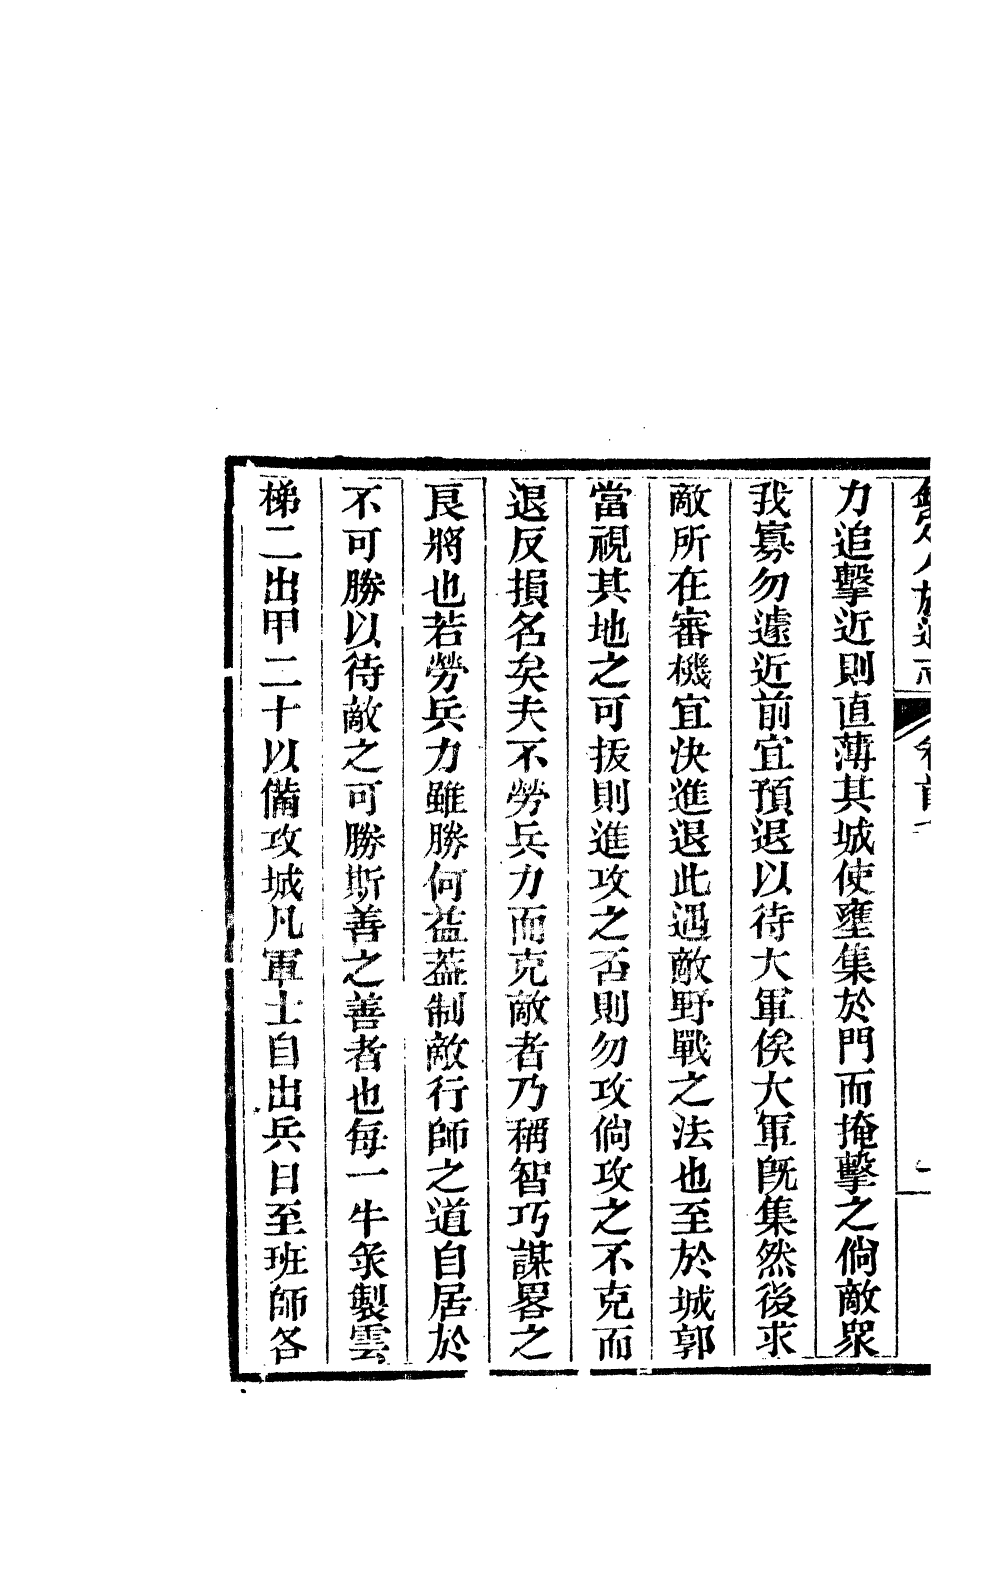 欽定八旗通志 卷首一
力追擊近則直薄其城使壅集於門而掩擊之倘敵眾
我寡勿遽近前宜預退以待大軍俟大軍旣集然後求
敵所在審機宜決進退此遇敵野戰之法也至於城郭
當視其地之可拔則進攻之否則勿攻倘攻之不克而
退反損名矣夫不勞兵力而克敵者乃稱智巧謀畧之
良將也若勞兵力雖勝何益葢制敵行師之道自居於
不可勝以待敵之可勝斯善之善者也每一牛彔製雲
梯二出甲二十以備攻城凡軍士自出兵日至班師各